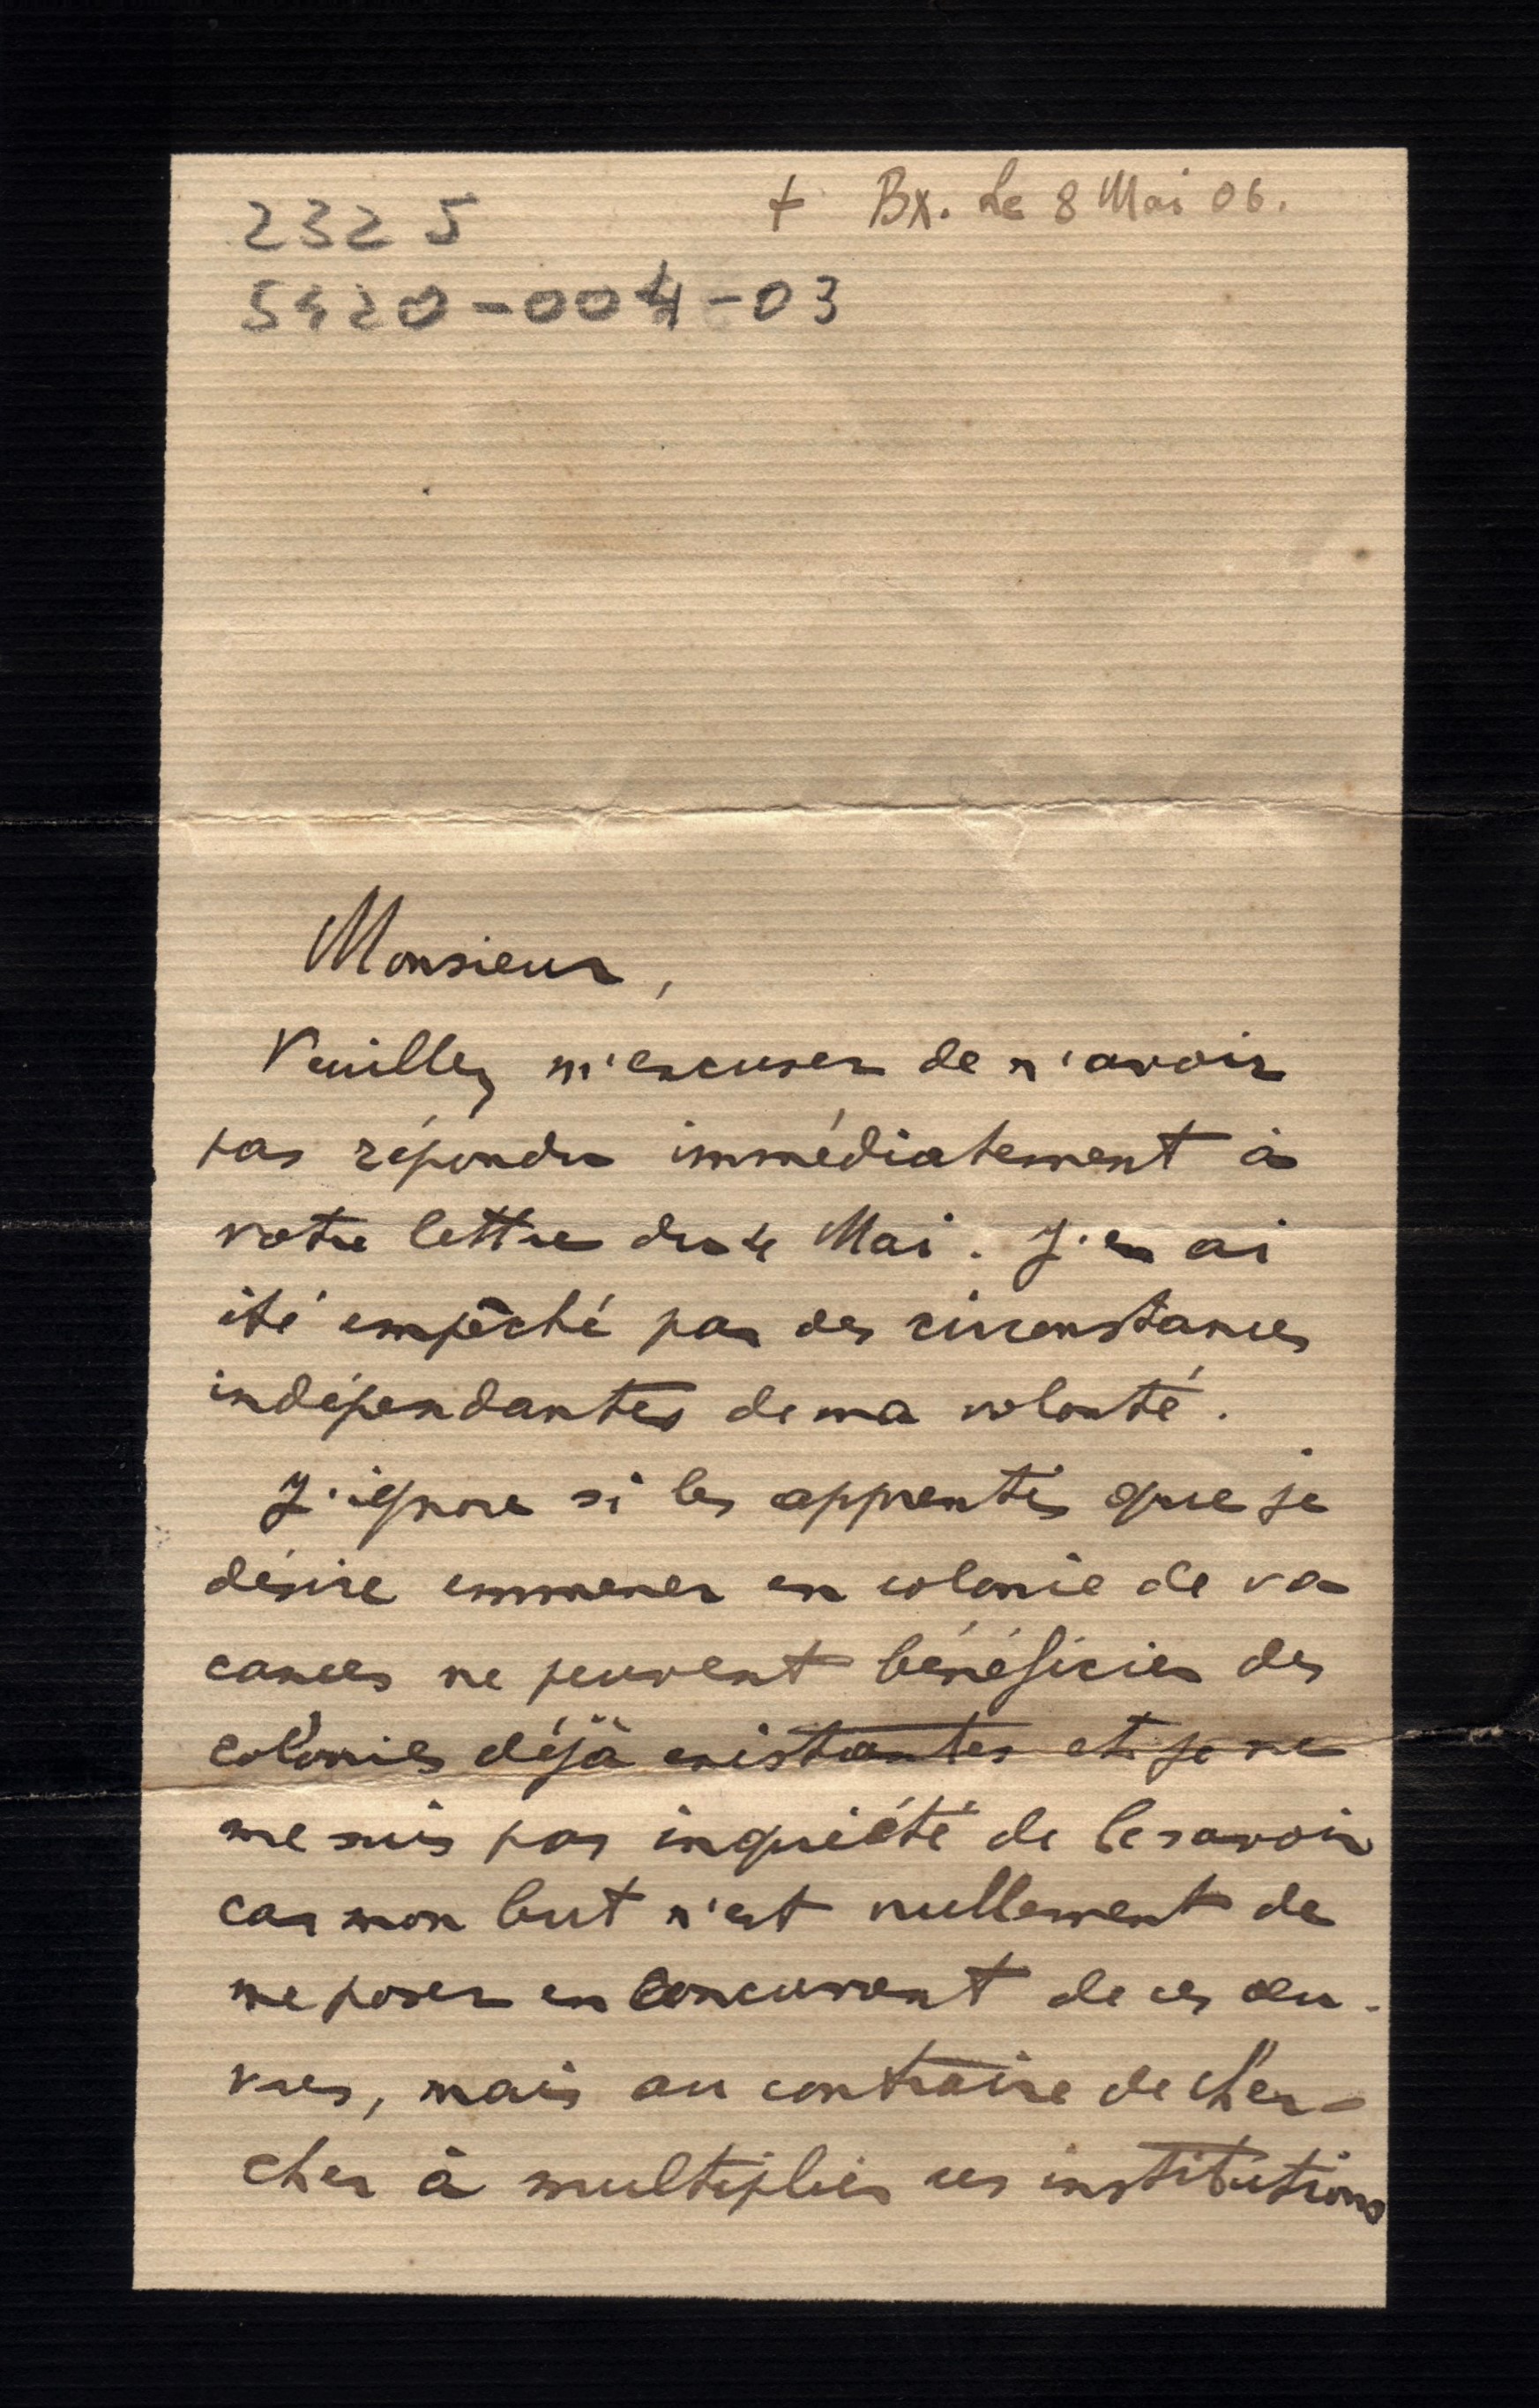 2325
+ Bx. Le 8 Mai 06.
5420-004-03
Monsieur,
Veuillez m'excuser de n'avoir
pas répondu immédiatement à
votre lettre du 4 Mai. J'en ai
été empêché par des circonstances
indépendantes de ma volonté.
J'ignore si les apprentis que je
désire emmener en colonie de va
cances ne peuvent bénéficier des
colonies déjà existantes et je ne
me suis pas inquiété de le savoir
car mon but n'est nullement de
me poser en concurrent de ces œu-
vres, mais au contraire de cher-
cher à multiplier ces institutions